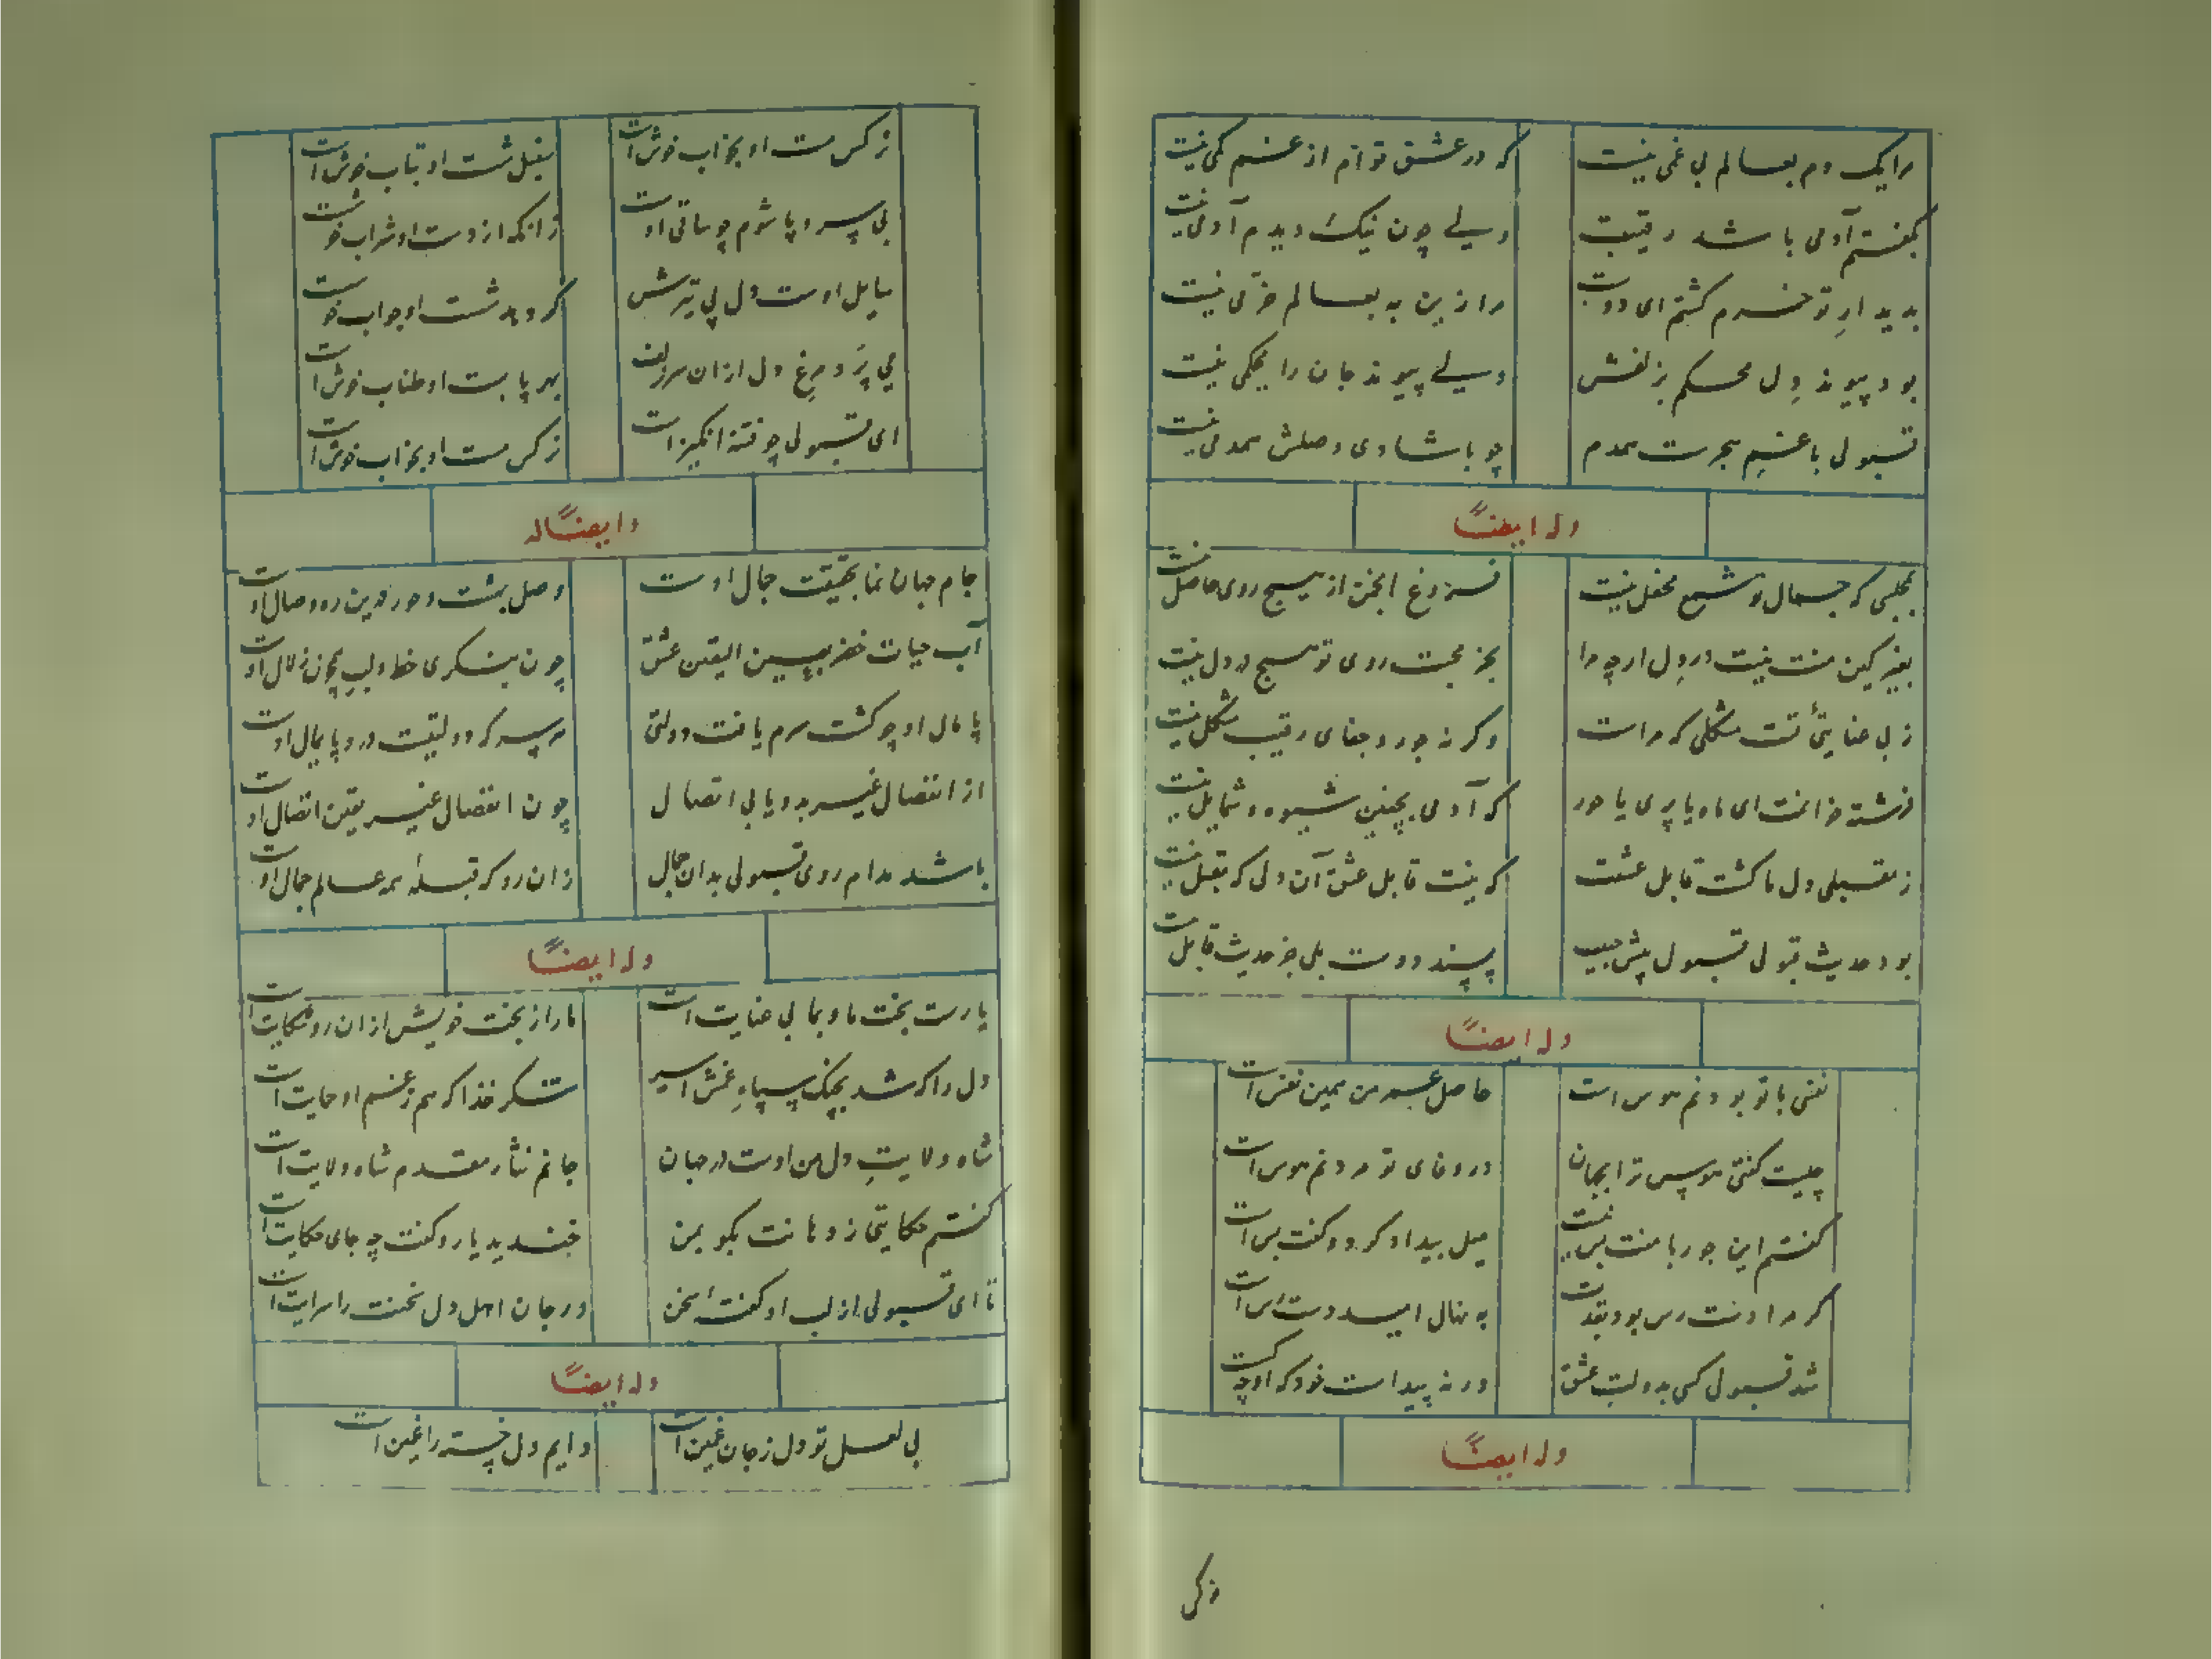 مرا یک دم بعالم بی غمی نیست که در عشق توام از غم کمی نیست
بگفتم آدمی باشد رقیبت ولی چون نیک دیدم آدمی نیست
بدیدارِ تو خرم گشتم ای دوست مرا زین به بعالم خرّمی نیست
بود پیوند دل محکم بزلفش ولی پیوند جان را محکمی نیست
قبولی با غم هجرت همدم چو با شادی وصلش همدمی نیست
وله ایضاً
بمجلسی که جمال تو شمع محفل نیست فروغ انجمن از هیچ روی حاصل نیست
بغیر کین منت نیست در دل ارچه مرا بجز محبت روی تو هیچ در دل نیست
ز بی عنایتی تست مشکلی که مراست وکرنه جور و جفای رقیب مشکل نیست
فرشته خوانمت ای ماه یا پری یا حور که آدمی بچنین شیوه و شمایل نیست
ز مقبلی دل ما گشت قابل عشقت که نیست قابل عشق آن دلی که مقبل نیست
بود حدیث قبولی قبول پیش حبیب پسند دوست بلی جز حدیث قابل نیست
وله ایضاً
نفسی با تو بودنم هوس است حاصل عمر من همین نفس است
چیست گفتی هوس ترا بجهان در وفای تو مردنم هوس است
گفتم این جور با منت بس نیست میل بیداد کرد و گفت بس است
کر مرا دست رس بود بقدت به نهال امید دست رس است
شد قبولی کسی بدولت عشق ورنه پیداست خود که او چه کست
وله ایضاً
نرکس
نرکس مست او بخواب خوش است سنبل شست او بتاب خوش است
بی سر و پا شوم چو ساقی اوست زانکه از دست او شراب خوشست
سایل اوست دل پی تیرش کر دهد شست او جواب خوشست
می پرد مرغ دل از ان سر زلف بهر پا بست او طناب خوش است
ای قبولی چو فتنه انگیز است نرکس مست او بخواب خوش است
وایضاً له
جام جهان نما بحقیقت جمال اوست وصل بهشت و حور درین ره وصال اوست
آب حیات خضر ببین الیقین عشق چون بنکری خط و لب همچون زلال اوست
پامال او چو گشت سرم یافت دولتی هر سر که دولتیست درو پایمال اوست
از انفصال غیر بدو یابی اتصال چون انفصال غیر یقین اتصال اوست
باشد مدام روی قبولی بدان جمال زان رو که قبلهٔ همه عالم جمال اوست
وله ایضاً
یارست بخت ما و بما بی عنایت است ما را ز بخت خویش از ان رو شکایت است
دل را که شد بچنک سپاهِ غمش اسیر شکر خدا که هم ز غم او حمایت است
شاه ولایتِ دل من اوست در جهان جانم نثار مقدم شاه ولایت است
گفتم حکایتی ز دهانت بکو بمن خندید یار و گفت چه جای حکایت است
تا ای قبولی از لب او گفتهٔ سخن در جان اهل دل سخنت را سرایت است
وله ایضاً
بی لعل تو دل ز جان غمین است دایم دل خسته را غم این است